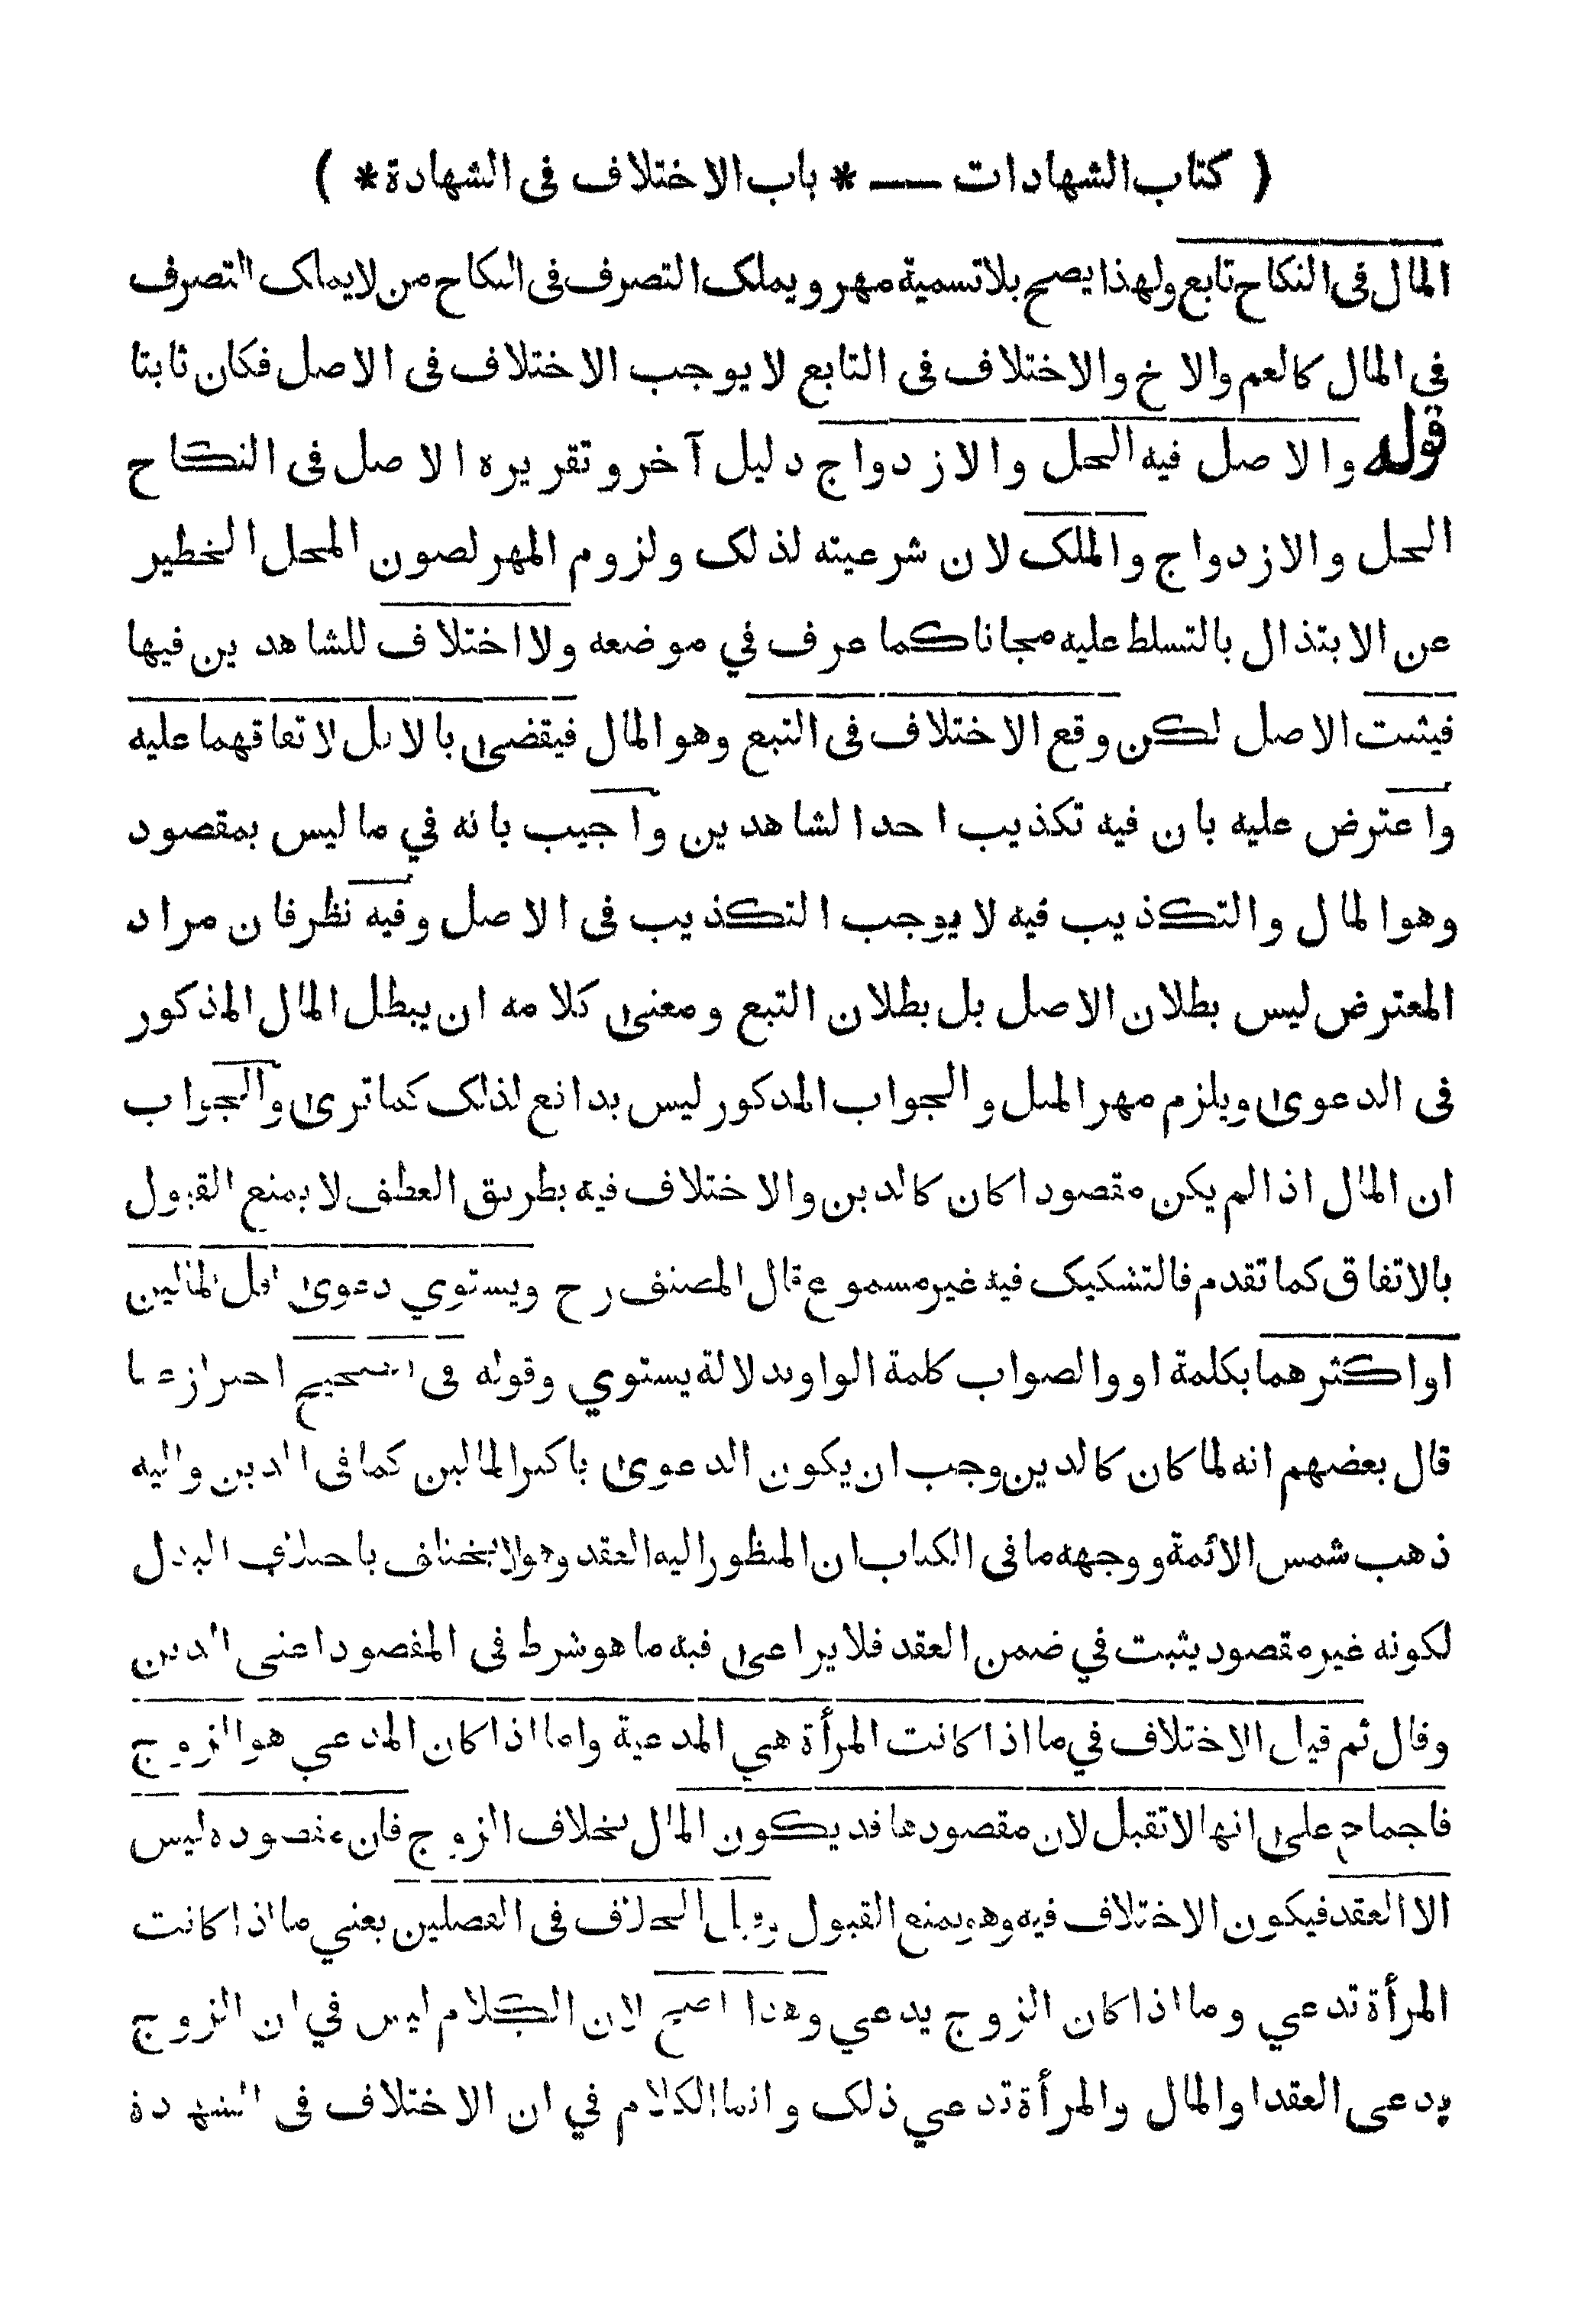 ( كتاب الشهادات — * باب الاختلاف فى الشهادة * )
المال فى النكاح تابع ولهذا يصح بلا تسمية مهر ويملك التصرف فى النكاح من لا يملك التصرف
فى المال كالعم والاخ والاختلاف فى التابع لا يوجب الاختلاف فى الاصل فكان ثابتا
قوله والاصل فيه الحل والازدواج دليل آخر وتقريره الاصل فى النكاح
الحل والازدواج والملك لان شرعيته لذلك ولزوم المهر لصون المحل الخطير
عن الابتذال بالتسلط عليه مجانا كما عرف في موضعه ولا اختلاف للشاهدين فيها
فيثبت الاصل لكن وقع الاختلاف فى التبع وهو المال فيقضى بالاقل لاتفاقهما عليه
واعترض عليه بان فيه تكذيب احد الشاهدين واجيب بانه في ما ليس بمقصود
وهو المال والتكذيب فيه لا يوجب التكذيب فى الاصل وفيه نظر فان مراد
المعترض ليس بطلان الاصل بل بطلان التبع ومعنى كلامه ان يبطل المال المذكور
فى الدعوى ويلزم مهر المثل والجواب المذكور ليس بدافع لذلك كما ترى والجواب
ان المال اذا لم يكن مقصودا كان كالدين والاختلاف فيه بطريق العطف لا يمنع القبول
بالاتفاق كما تقدم فالتشكيك فيه غير مسموع قال المصنف رح ويستوي دعوى اقل المالين
او اكثرهما بكلمة او والصواب كلمة الواو بدلالة يستوي وقوله فى الصحيح احتراز عما
قال بعضهم انه لما كان كالدين وجب ان يكون الدعوى باكثر المالين كما فى الدين واليه
ذهب شمس الائمة ووجهه ما فى الكتاب ان المنظور اليه العقد وهو لا يختلف باختلاف البدل
لكونه غير مقصود يثبت في ضمن العقد فلا يراعى فيه ما هو شرط فى المقصود اعنى الدين
وقال ثم قيل الاختلاف في ما اذا كانت المرأة هي المدعية واما اذا كان المدعي هو الزوج
فاجماع على انها لا تقبل لان مقصودها قد يكون المال بخلاف الزوج فان مقصوده ليس
الا العقد فيكون الاختلاف فيه وهو يمنع القبول وقيل الخلاف فى الفصلين يعني ما اذا كانت
المرأة تدعي وما اذا كان الزوج يدعي وهذا اصح لان الكلام ليس في ان الزوج
يدعى العقد او المال والمرأة تدعي ذلك وانما الكلام في ان الاختلاف فى الشهادة